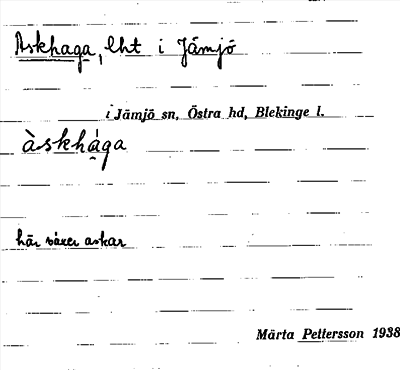 Askhaga, lht i Jämjö
i Jämjö sn, Östra hd, Blekinge l.
àskhá̱ga
här växer askar
Märta Pettersson 1938